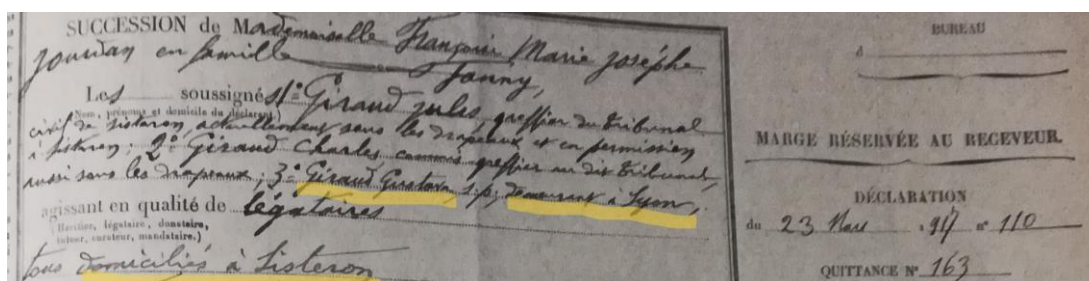 SUCCESSION de Mademoiselle Françoise Marie Josèphe
Jourdan en famille Fanny,
Les soussignés 1° Giraud Jules, greffier du tribunal
(Nom, prénoms et domicile du déclarant.)
civil de Sisteron, actuellement sous les drapeaux et en permission
à Sisteron; 2° Giraud Charles, commis greffier au dit tribunal,
aussi sous les drapeaux; 3° Giraud Gustave, s.p., demeurant à Lyon,
agissant en qualité de légataires
(Héritier, légataire, donataire,
tuteur, curateur, mandataire.)
tous domiciliés à Sisteron
BUREAU
d
MARGE RÉSERVÉE AU RECEVEUR.
DÉCLARATION
du 23 Mars 1917 n° 110
QUITTANCE N° 163